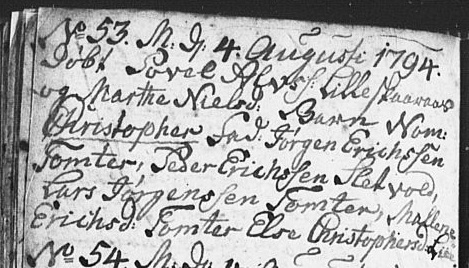 No 53. M: D: 4. Augusti 1794.
Döbt Povel Lille
og Marthe Nielsd: Barn Nom:
Christopher Fad: Jørgen Erichssen
Tomter, Peder Erichssen Sletvold,
Lars Jørgenssen Tomter, Mallene
Erichsd: Tomter Else Christophersd:
No 54. M: D: